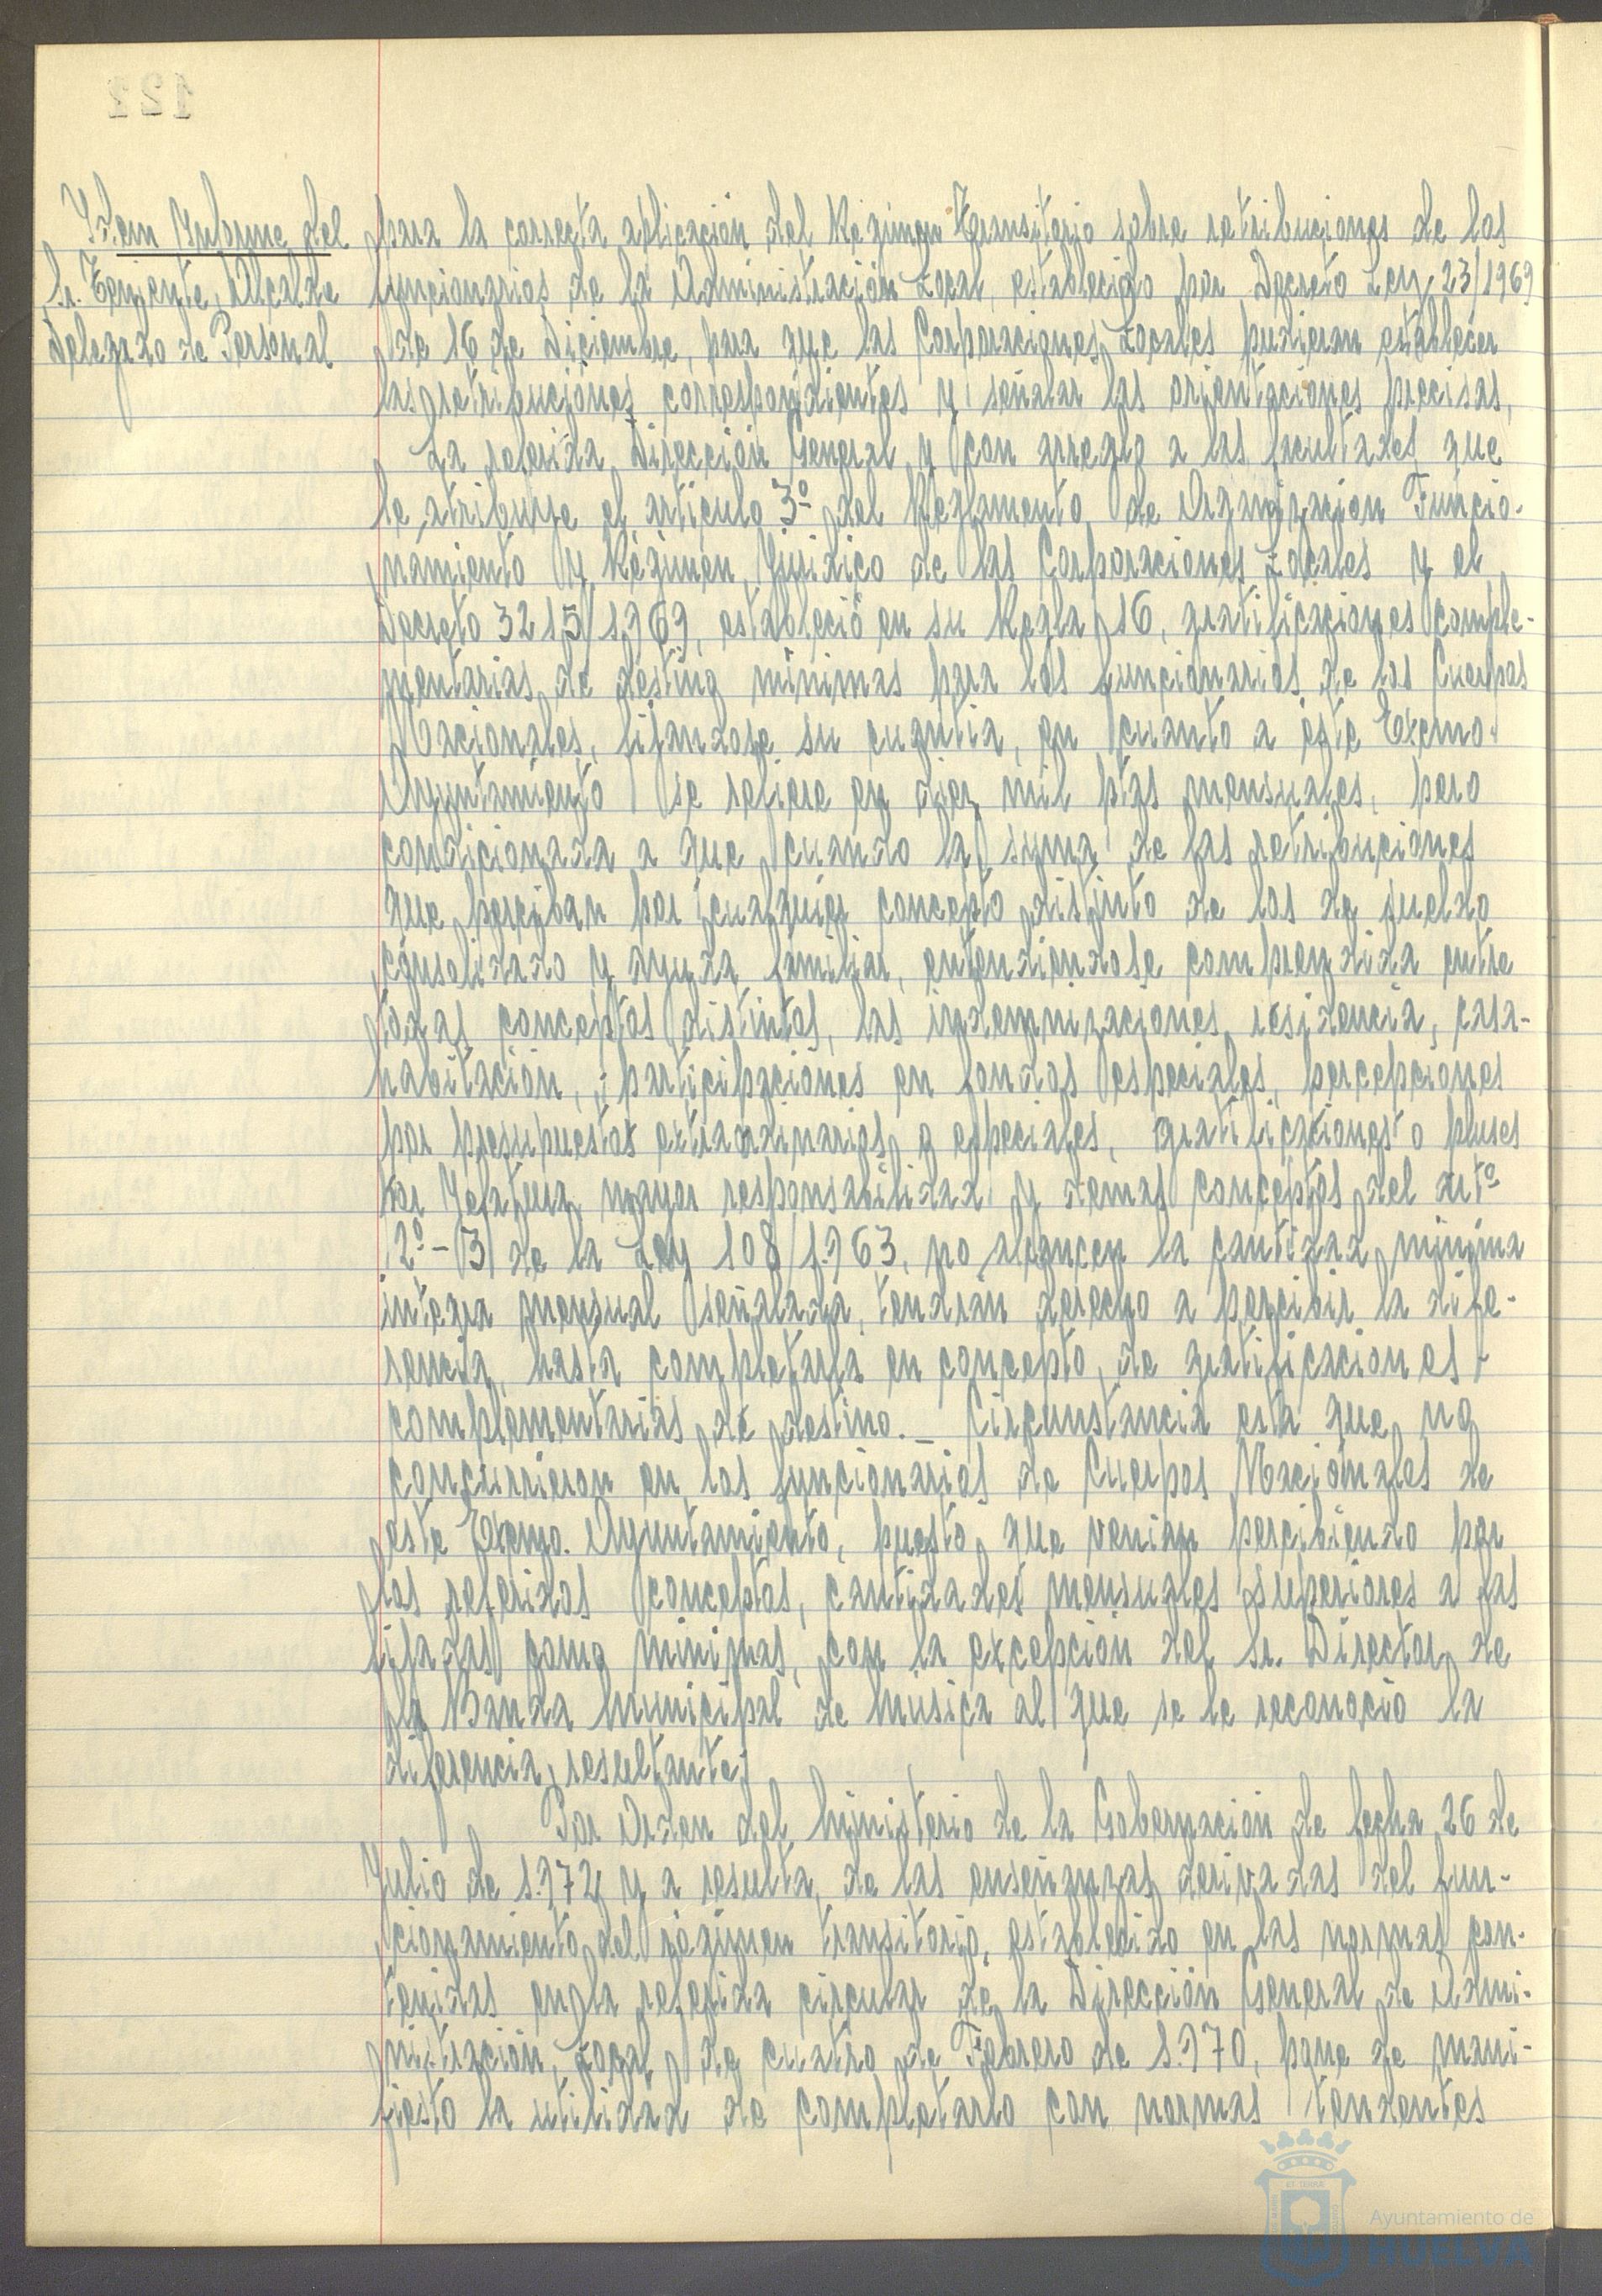 Idem Informe del
Sr. Teniente Alcalde
Delegado de Personal
para la correcta aplicación del Régimen transitorio sobre retribuciones de los
funcionarios de la Administración Local, establecido por Decreto Ley 23/1969
de 16 de Diciembre, para que las Corporaciones Locales pudieran establecer
las retribuciones correspondientes y señalar las orientaciones precisas,
La referida Dirección General y con arreglo a las facultades que
le atribuye el artículo 3º del Reglamento de Organización Funcio-
namiento y Régimen Jurídico de las Corporaciones Locales y el
Decreto 3215/1.969, estableció en su Regla 16, gratificaciones comple-
mentarias de destino mínimas para los funcionarios de los Cuerpos
Nacionales, fijandose su cuantía, en cuanto a éste Excmo.
Ayuntamiento se refiere en diez mil ptas mensuales, pero
condicionada a que cuando la suma de las retribuciones
que perciban por cualquier concepto distinto de los de sueldo
consolidado y ayuda familiar, entendiendose comprendida entre
todas conceptos distintos, las indemnizaciones, residencia, casa-
habitación, participaciones en fondos especiales, percepciones
por presupuestos extraordinarios o especiales, gratificaciones o pluses
por Jefatura mayor responsabilidad y demas conceptos del artº
2º-3 de la Ley 108/1.963, no alcancen la cantidad mínima
integra mensual señalada, tendrán derecho a percibir la dife-
rencia, hasta completarla en concepto, de gratificaciones
complementarias de destino._ Circunstancia esta que no
concurrieron en los funcionarios de Cuerpos Nacionales de
este Excmo. Ayuntamiento, puesto que venian percibiendo por
los referidos conceptos, cantidades mensuales superiores a las
fijadas como mínimas, con la excepción del Sr. Director de
la Banda Municipal de Música al que se le reconoció la
diferencia resultante.
Por Orden del Ministerio de la Gobernación de fecha 26 de
Julio de 1.972 y a resulta, de las enseñanzas derivadas del fun-
cionamiento del régimen transitorio, establecido en las normas con-
tenidas en la referida circular de la Dirección General de Admi-
nistración Local de cuatro de Febrero de 1.970, pone de mani-
fiesto la utilidad de completarlo con normas tendentes
122
Ayuntamiento de
HUELVA